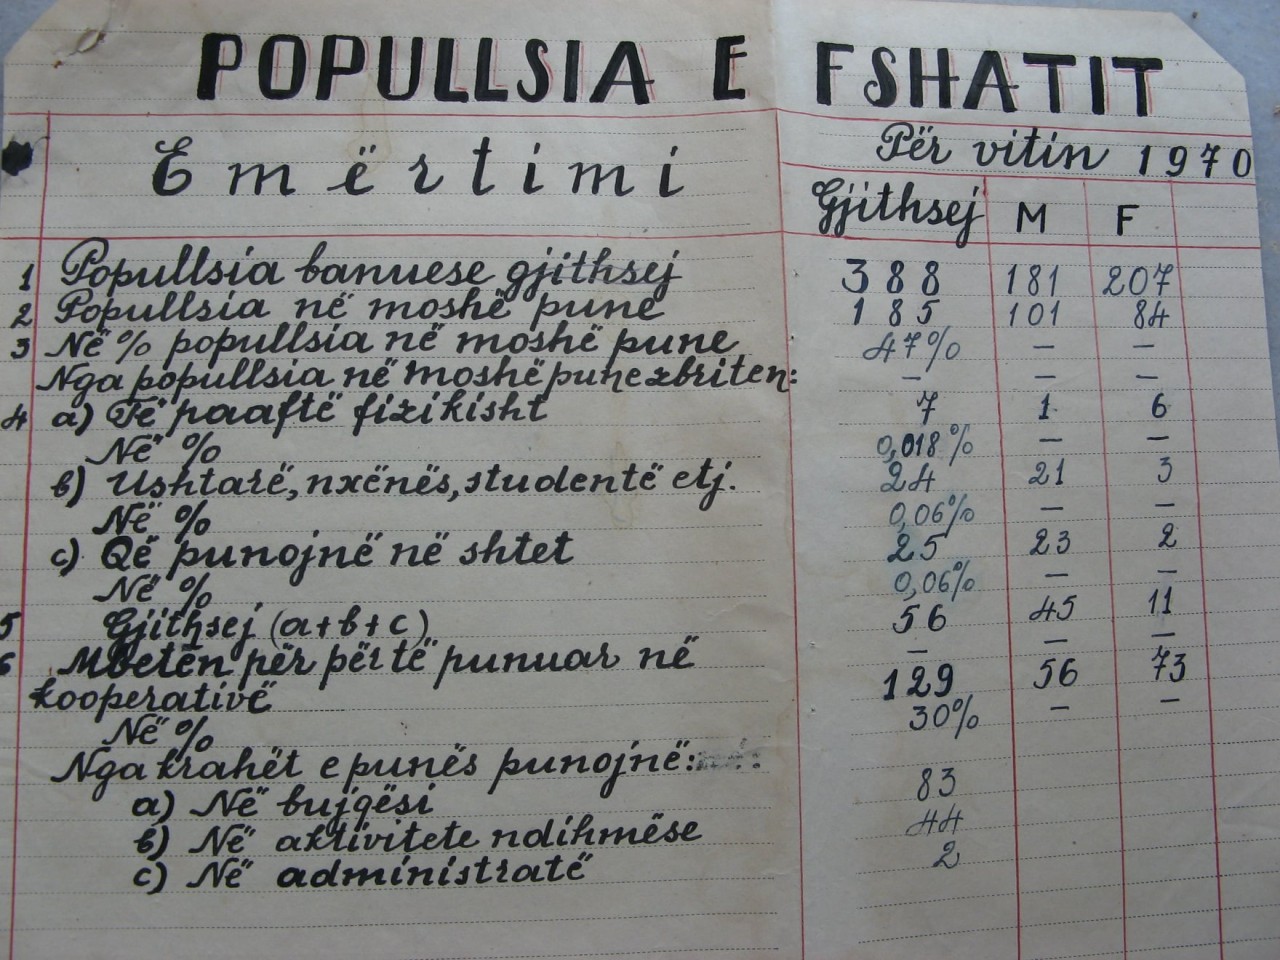 POPULLSIA E FSHATIT
Emërtimi Për vitin 1970
Gjithsej M F
1 Popullsia banuese gjithsej 388 181 207
2 Popullsia në moshë pune 185 101 84
3 Në % popullsia në moshë pune 47% — —
Nga popullsia në moshë pune zbriten: — — —
4 a) Të paaftë fizikisht 7 1 6
Në % 0,018% — —
b) Ushtarë, nxënës, studentë etj. 24 21 3
Në % 0,06% — —
c) Që punojnë në shtet 25 23 2
Në % 0,06% — —
5 Gjithsej (a+b+c) 56 45 11
— — —
6 Mbetën për për të punuar në 129 56 73
kooperativë
Në % 30% — —
Nga krahët e punës punojnë:
a) Në bujqësi 83
b) Në aktivitete ndihmëse 44
c) Në administratë 2